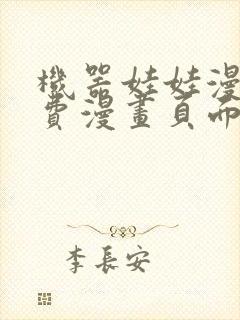 機器娃娃漫
費漫畫頁面
李長安